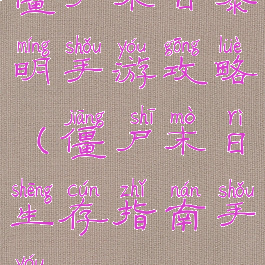 míng shǒu yóu gōng lüè
明手游攻略
jiāng shī mò rì
（僵尸末日
shēng cún zhǐ nán shǒu
生存指南手